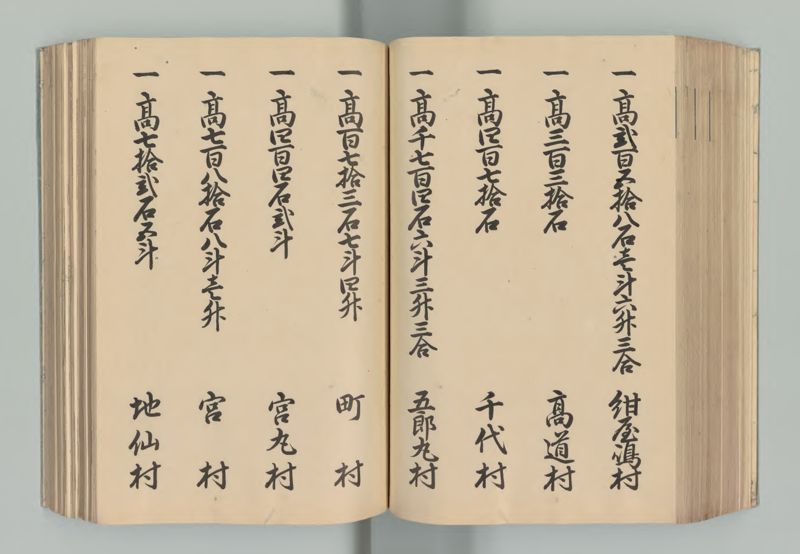 一高弐百五拾八石壱斗六升三合 紺屋嶋村
一高三百三拾石 高道村
一高四百七拾石 千代村
一高千七百四石六斗三升三合 五郎丸村
一高百七拾三石七斗四升 町村
一高四百四石弐斗 宮丸村
一高七百八拾石八斗壱升 宮村
一高七拾弐石五斗 地仙村